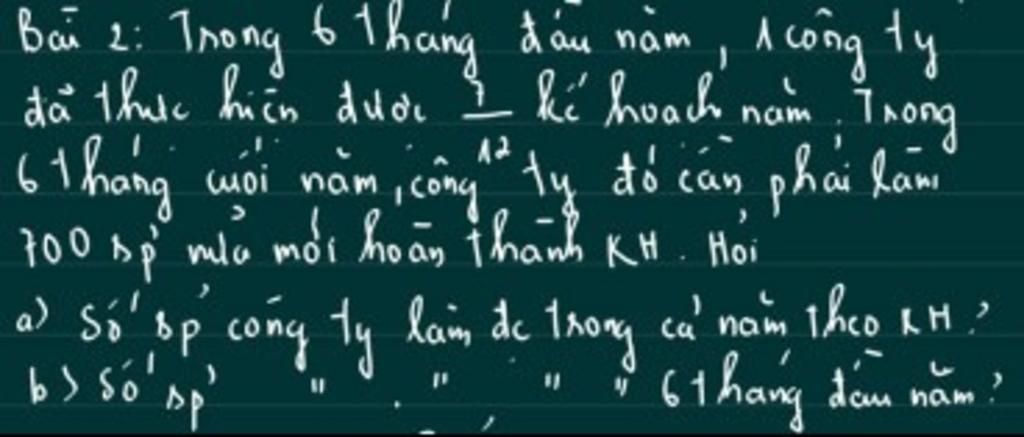 Bài 2: Trong 6 tháng đầu năm, 1 công ty
đã thực hiện được 7/12 kế hoạch năm. Trong
6 tháng cuối năm, công ty đó cần phải làm
700 sp nữa mới hoàn thành KH. Hỏi
a) Số sp công ty làm đc trong cả năm theo KH?
b) Số sp " " " " 6 tháng đầu năm?